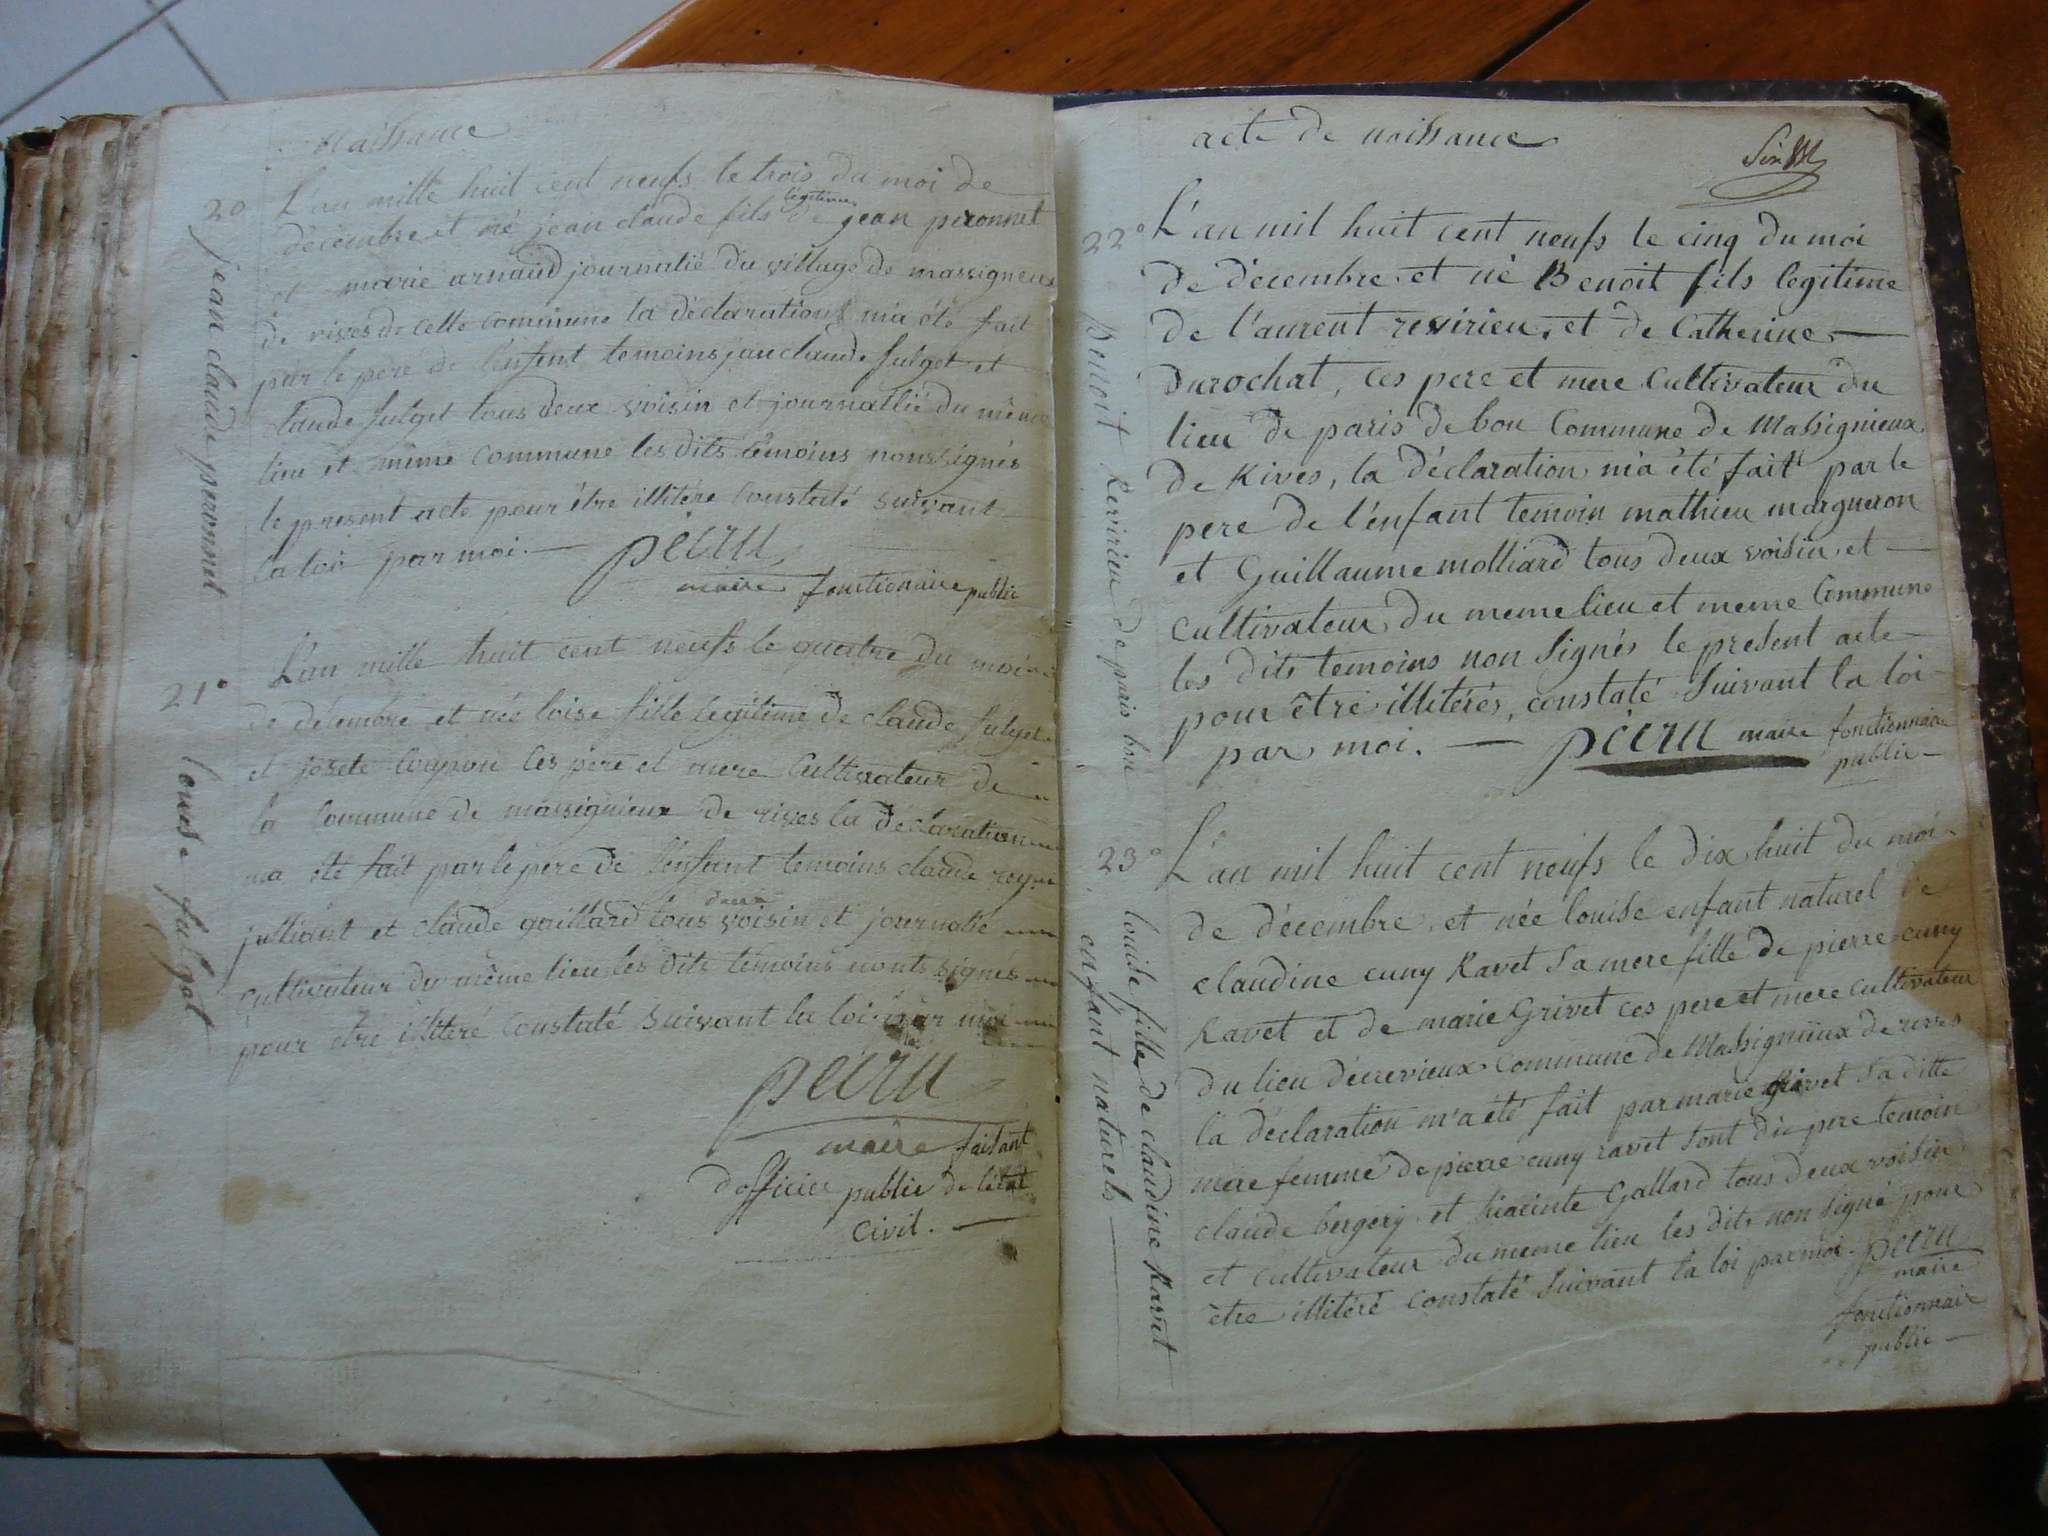 Naissance
20
jean claude peronnet
L'an mille huit cent neufs le trois du moi de
décembre et né jean claude fils légitime de jean peronnet
et marie arnaud journalié du village de massigneux
de rives de cette commune la déclaration m'a été fait
par le pere de l'enfent temoins jan claude fulget et
claude fulget tous deux voisin et journallié du même
lieu et même commune les dits témoins nonssignés
le present acte pour être illitére Constaté suivant
la loi par moi. — pécru
maire fonctionaire public
21°
louise fulgat
L'an mille huit cent neufs le quatre du moi
de décembre et née loise fille legitime de claude fulget
et josete ces pere et mere Cultivateur de
la Commune de massignieux de rives la déclaration
ma été fait par le pere de l'enfant temoins claude
julliant et claude gaillard tous deux voisin et journalié
cultivateur du même lieu les dits témoins nonts signés
pour être illiteré Constaté suivant la loi par moi
pécru
maire faisant
d'officier public de l'état
civil. —
acte de naissance
Six
22°
benoit Revirieu de paris bon
L'an mil huit cent neufs le cinq du moi
de décembre et né Benoit fils legitime
de l'aurent revirieu, et de Catherine —
Durochat, ces pere et mere Cultivateur du
lieu de paris de bon Commune de Massignieux
de Rives, la déclaration m'a été fait par le
pere de l'enfant temoin mathieu margueron
et Guillaume molliard tous deux voisin et —
cultivateur du meme lieu et meme Commune
les dits temoins non signés le present acte
pour être illitérés, constaté suivant la loi
par moi. — pécru maire fonctionnaire
public —
23°
louise fille de claudine Ravet
enfant naturels —
L'an mil huit cent neufs le dix huit du moi
de décembre, et née louise enfant naturel de
claudine cuny Ravet sa mere fille de pierre cuny
Ravet et de marie Grivet ces pere et mere cultivateur
du lieu décrevieux Commune de Massignieux de rives
la déclaration m'a été fait par marie grivet sa ditte
mere femme de pierre cuny ravet sont dit pere temoin
claude bergery et hiacinte Gallard tous deux voisin
et cultivateur du meme lieu les dits non signé pour
être illitéré constaté suivant la loi par moi. pécru
maire
fonctionnaire
public —